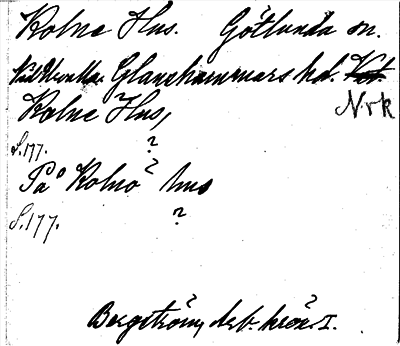 Kolne Hus. Götlunda sn.
Glanshammars hd. Vst.
Kolne Hus, Nrk
S.177. ?
På Kolnö hus
S.177. ?
Bergström, Arb. krön. I.